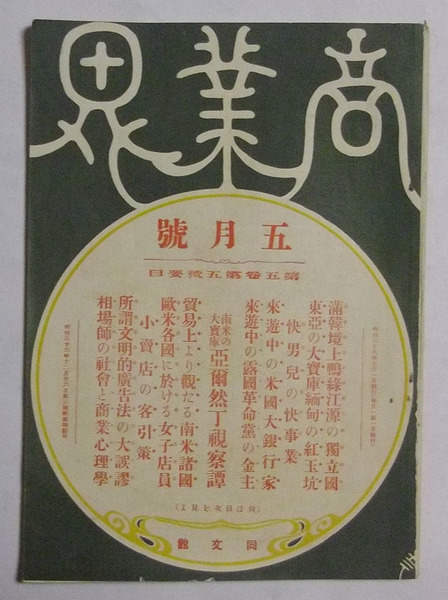 商業界
五月號
第五卷第五號要目
滿韓境上鴨綠江源の獨立國
東亞の大寶庫緬甸の紅玉坑
快男兒の快事業
來遊中の米國大銀行家
來遊中の露國革命黨の金主
南米の大寶庫 亞爾然丁視察譚
貿易上より觀たる南米諸國
歐米各國に於ける女子店員
小賣店の客引策
所謂文明的廣告法の大誤謬
相場師の社會と商業心理學
(尚ほ目次を見よ)
同文館